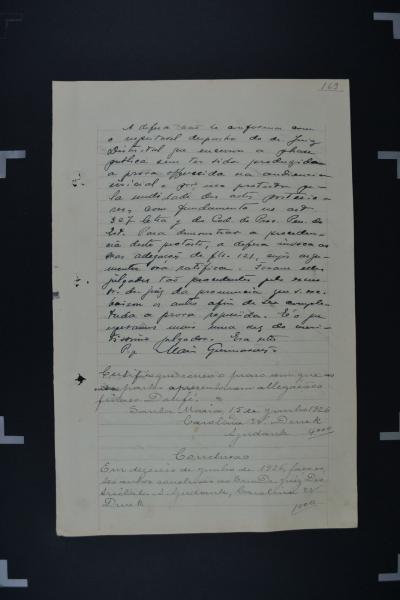 163
A defesa não se conforma com
o respeitavel despacho do dr. Juiz
Districtal que encerrou a phase
publica sem ter sido produzida
a prova offerecida na audiencia
inicial e por isso protesta pe-
la nullidade dos actos posterio-
res, com fundamento no art.
327 letra do Cod. do Proc. Pen. do
Est. Para demonstrar a proceden-
cia deste protesto, a defesa invoca as
suas allegações de fls. 121, cujos argu-
mentos ora ratifica. Foram elles
julgados tão procedentes pelo
dr. juiz da pronuncia que
os autos afim de ser comple-
tada a prova requerida. É o que
esperamos mais uma vez do meri-
tissimo julgador.
P.p. Guimarães
Certifico que decorreu o prazo em que as
partes apresentaram allegações
finaes. Dou fé.
Santa Maria 15 de junho 1926
Carolina W. Druck
Ajudante
Conclusão
Em de junho de 1926, faço es-
tes autos conclusos ao Snr. Dr. Juiz Dis-
trictal. Ajudante, Carolina W.
Druck